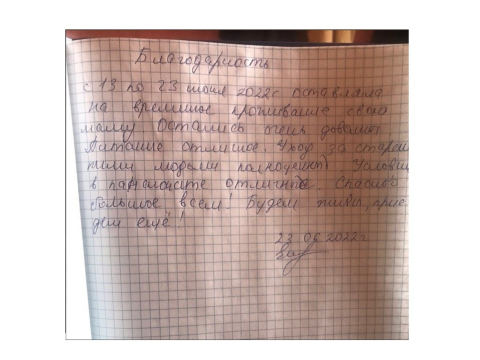 Благодарность
с 13 по 23 июня 2022г. оставляла
на временное проживание свою
маму. Остались очень довольны
Питание отличное. Уход за старень
кими людьми
в пансионате отличные. Спасибо
большое всем! Будем живы, прие
дем ещё!
23.06.2022г